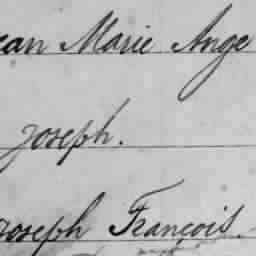 ean Marie Ange
Joseph.
Joseph François.